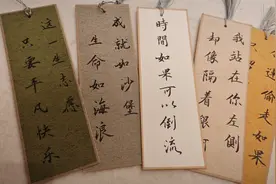 這一生志愿
只要平凡快乐
成就如沙堡
生命如海浪
時間如果可以倒流
我站在你左側
却像隔着銀
偷走如果